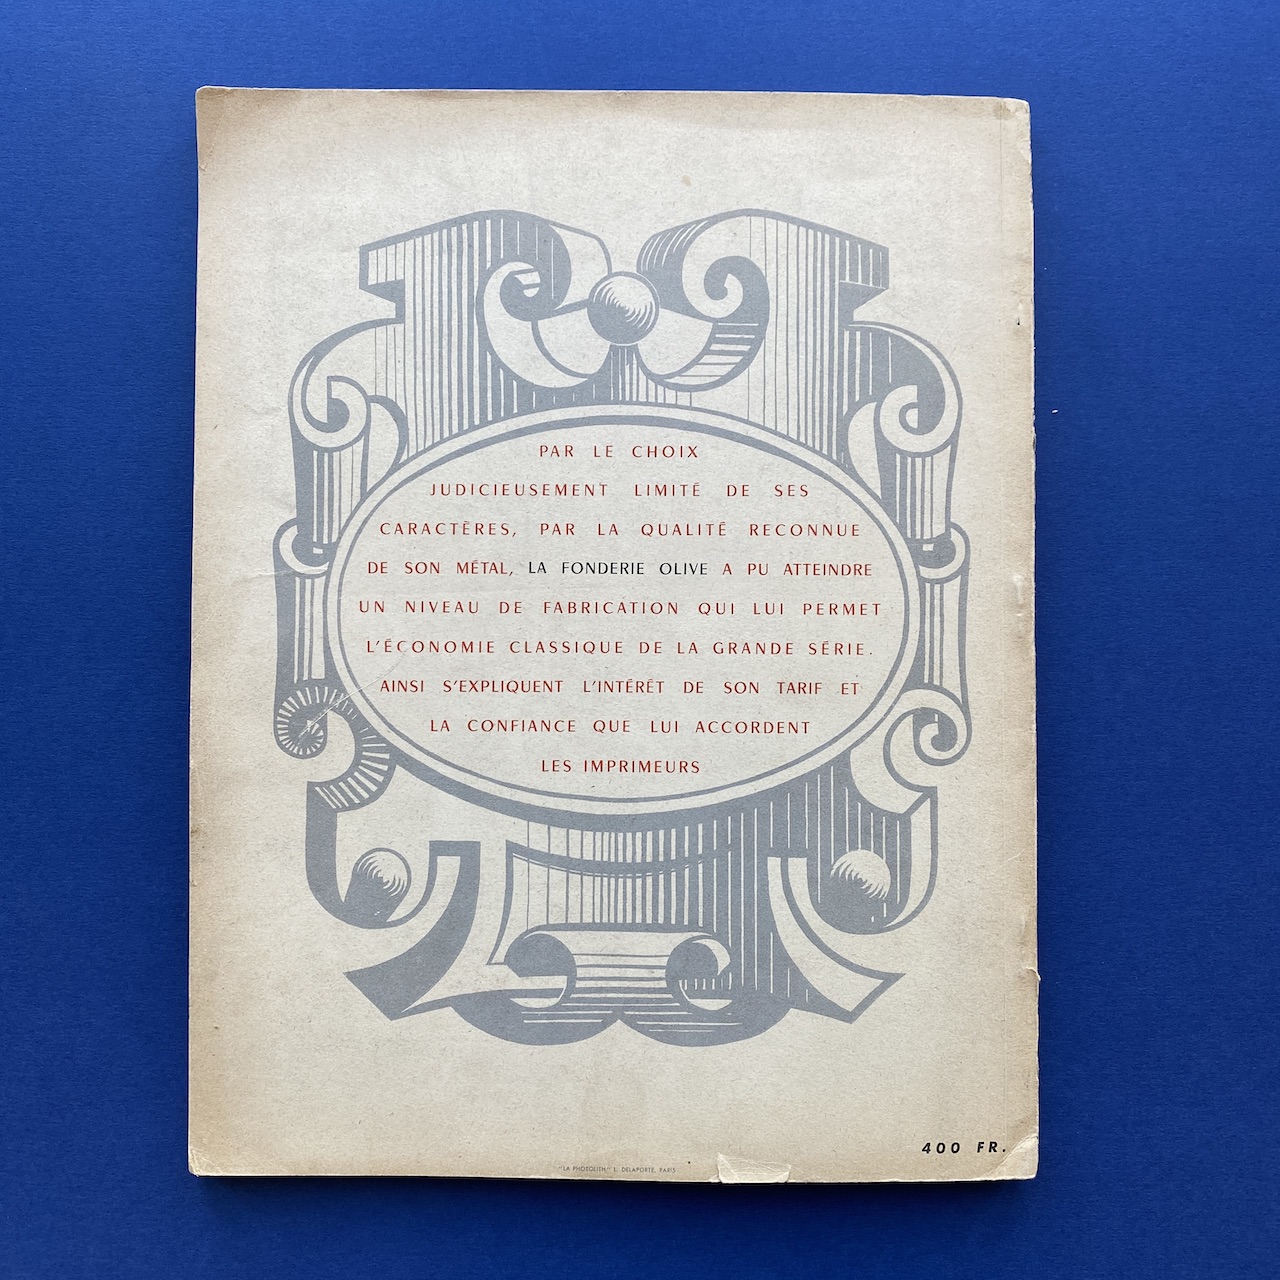 PAR LE CHOIX
JUDICIEUSEMENT LIMITÉ DE SES
CARACTÈRES, PAR LA QUALITÉ RECONNUE
DE SON MÉTAL, LA FONDERIE OLIVE A PU ATTEINDRE
UN NIVEAU DE FABRICATION QUI LUI PERMET
L'ÉCONOMIE CLASSIQUE DE LA GRANDE SÉRIE.
AINSI S'EXPLIQUENT L'INTÉRÊT DE SON TARIF ET
LA CONFIANCE QUE LUI ACCORDENT
LES IMPRIMEURS
400 FR.
"LA PHOTOLITH" L. DELAPORTE, PARIS